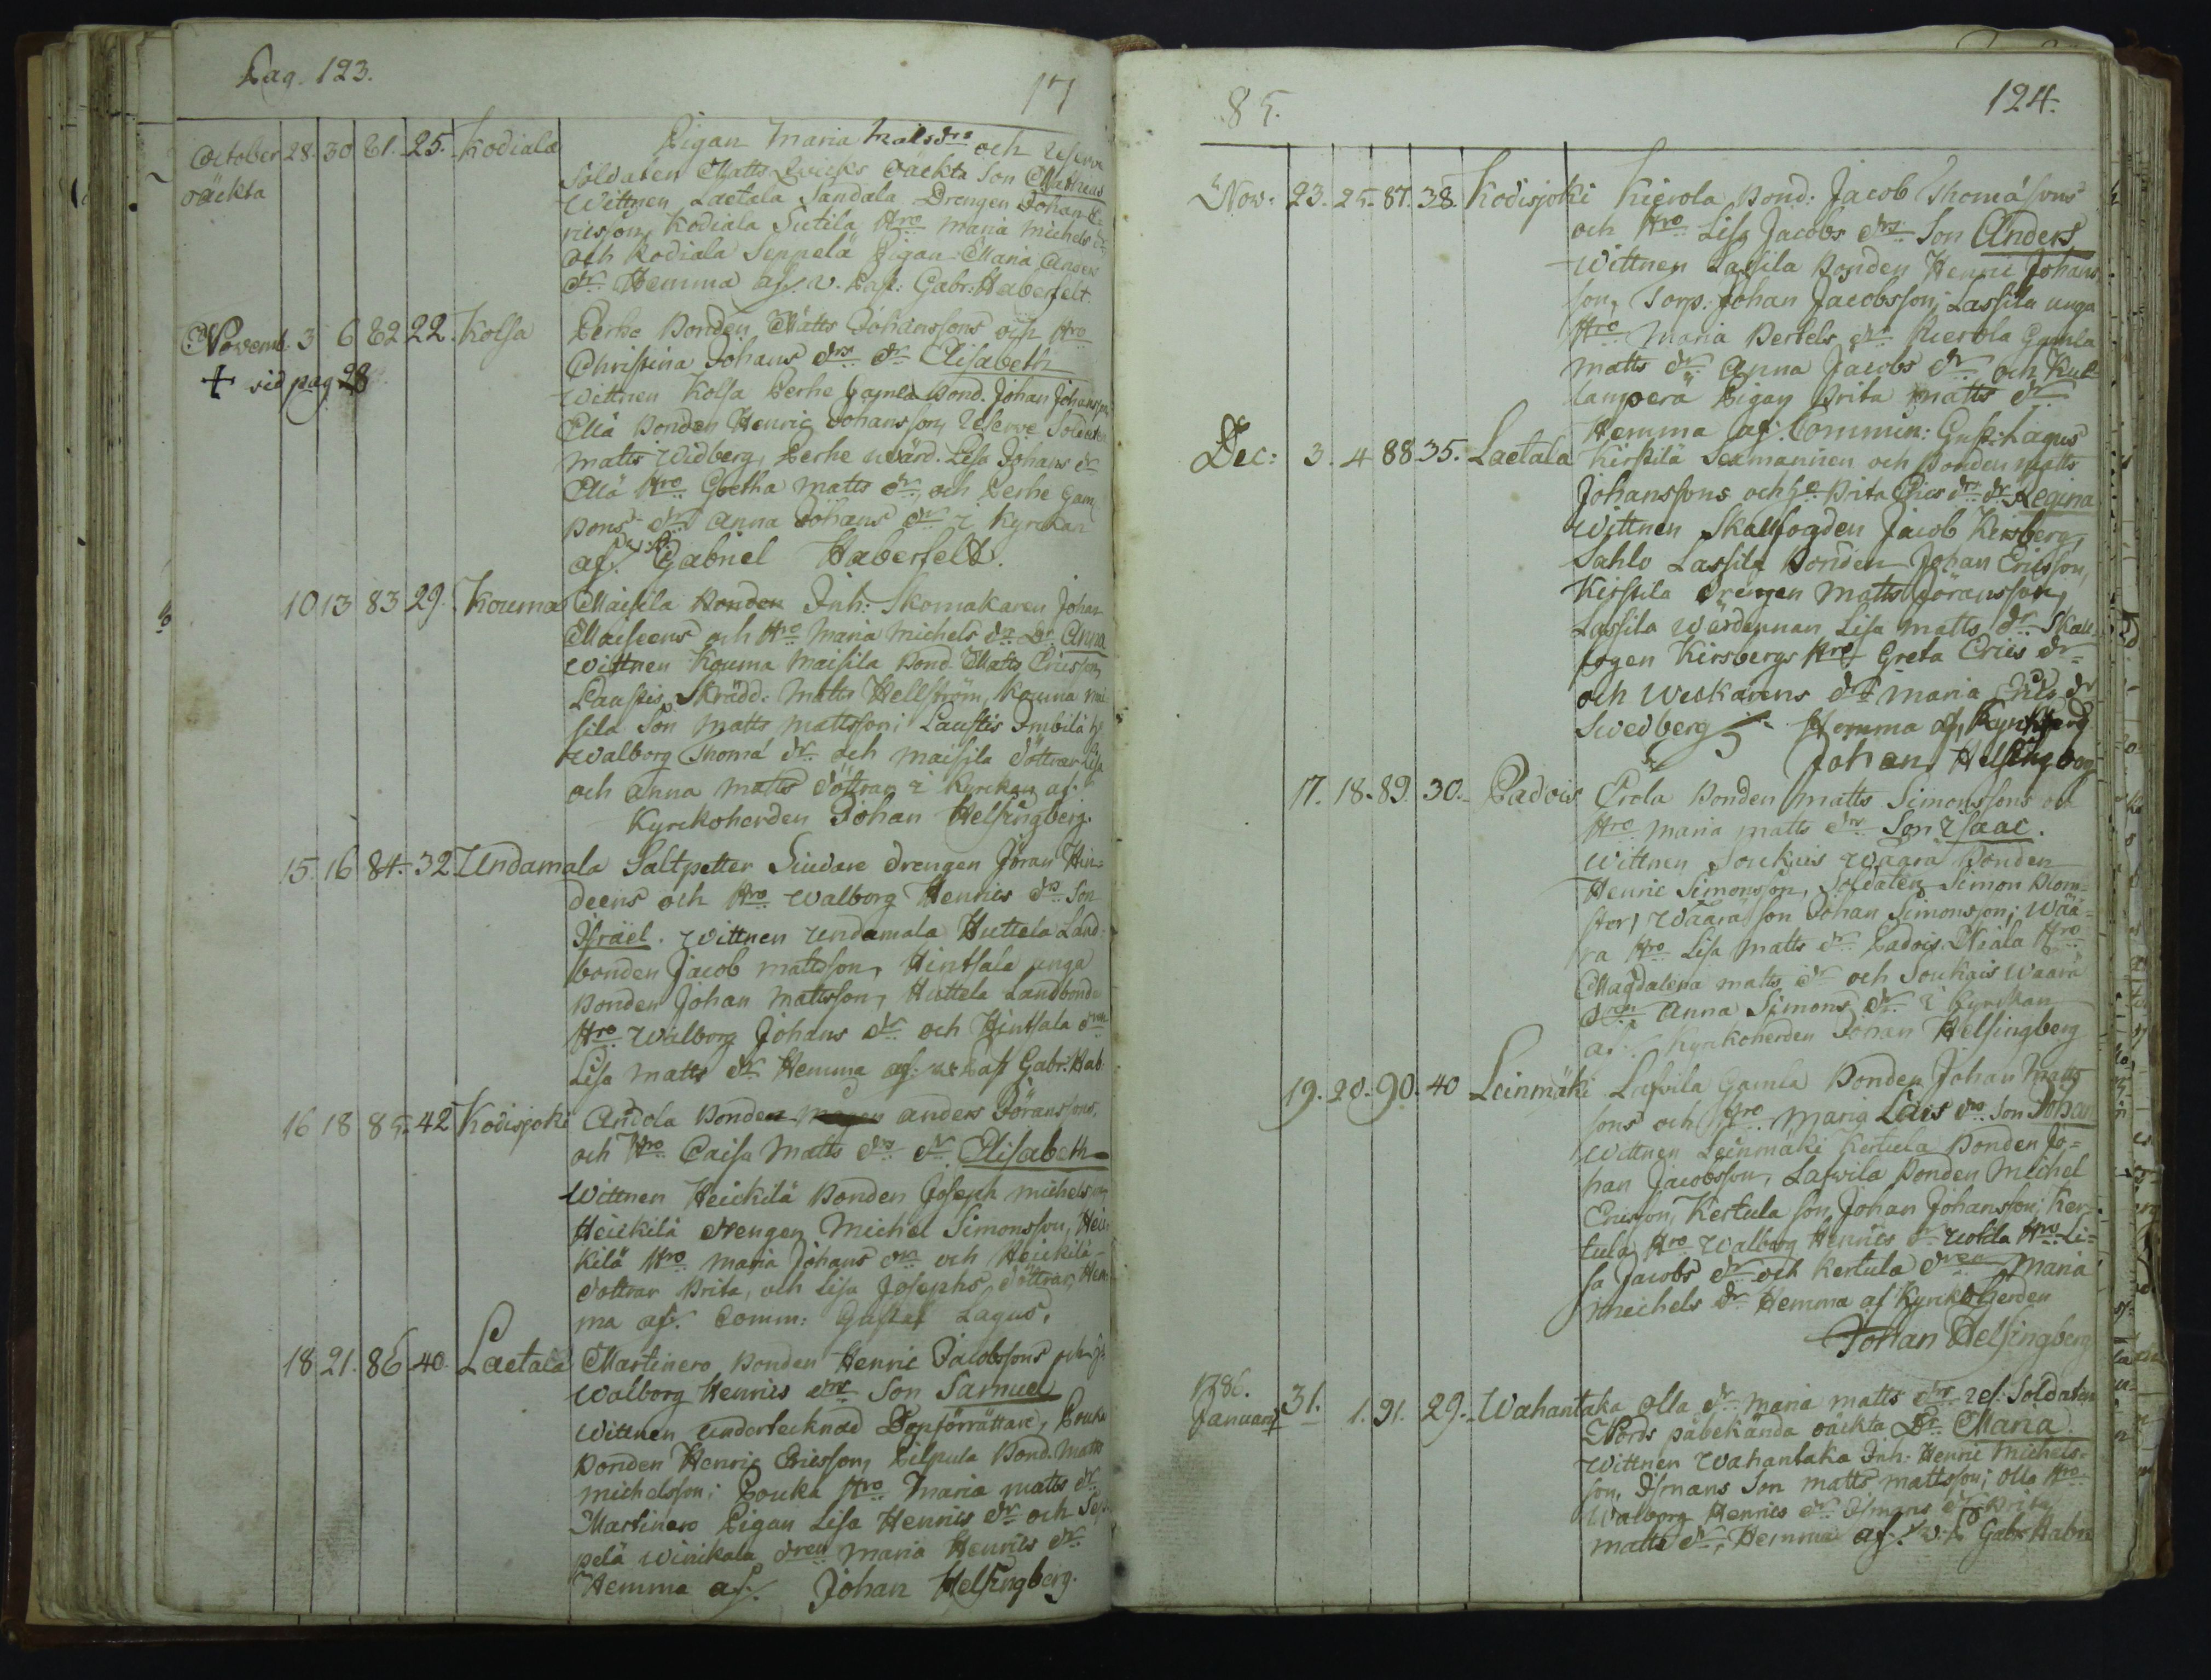 Pag. 123.
17
October 28. 30 81. 25. Kodiala Pigan Maria Matsdrs och Reserve
oäckta
Soldaten Matts Qvicks oäckta Son Matheus
Wittnen Laetala Sandala Drengen Johan E-
ricsson, Kodiala Sutila Hro Maria Michels dr
och Kodiala Seppelä Pigan Maria Anders
dr Hemma af. v. Past: Gabr: Haberfelt.
Novemb. 3 6 82 22. Kolsa Perhe Bonden Matts Johanssons och Hro
+ vid pag 28
Christina Johans drs dr Elisabeth
Wittnen Kolsa Perhe Gamla Bond. Johan Johansson
Ellä Bonden Henric Johansson, Reserve Soldaten
Matts Widberg, Perhe wärd. Lisa Johans dr
Ellä Hro Gretha Matts dr och Perhe Gam.
Bons dr Anna Johans dr i Kyrckan
af. Gabriel Haberfelt.
10 13 83 29. Kouma Maisila Bonden Inh: Skomakaren Johan
Maiseens och Hro Maria Michels drs Dr Anna
Wittnen Kouma Maisila Bond. Matts Ericsson,
Laustis Skrädd. Matts Hellström, Kouma Mai-
sila Son Matts Mattsson; Laustis Imbilä
Walborg Thoma dr och Maisila döttrar Lisa
och Anna Matts döttrar i Kyrckan af.
Kyrckoherden Johan Helsingberg.
15. 16 84. 32 Undamala Saltpetter Siudare Drengen Jöran Hin-
deens och Hro Walborg Henrics drs Son
Israël. Wittnen Undamala Huttela Land-
bonden Jacob Mattsson, Hintsala unga
Bonden Johan Mattsson, Huttela Landbonde
Hro Walborg Johans dr och Hintsala
Lisa Matts dr Hemma af. v. Past Gabr: Hab
16 18 85. 42 Kodisjoki Anola Bonden anders Jöranssons,
och Hro Caisa Matts drs dr Elisabeth
Wittnen Heickilä Bonden Joseph Michelsson
Heickilä drengen Michel Simonsson, Hei-
kilä Hro Maria Johans dr och Heickilä
dottrar Brita, och Lisa Josephs döttrar, Hem-
ma af. Comm: Gustaf Lagus,
18 21. 86 40. Laetala Martinero Bonden Henric Jacobssons och
Walborg Henrics drs Son Samuel
Wittnen undertecknad Dopförrättare, Pouka
Bonden Henric Ericsson, Pilpula Bond. Matts
Michelsson; Pouka Hro Maria Matts dr
Martinero Pigan Lisa Henrics dr och Sep-
pelä Winikala dren Maria Henrics dr
Hemma af. Johan Helsingberg.
85.
124.
Nov: 23. 25. 87. 38. Kodisjoki Kierola Bond: Jacob Thomassons
och Hro Lisa Jacobs drs Son Anders
Wittnen Lassila Bonden Henric Johans-
son, Torp. Johan Jacobsson; Lassila unga
Hro Maria Bertels dr Kierola Gamla
Matts dr Anna Jacobs dr och Kul-
lamperä Pigan Brita Matts dr
Hemma af. Commin: Gust: Lagus
Dec: 3. 4 88 35. Laetala Kirstilä Scamannen och Bonden Matts
Johanssons och Brita Erics drs dr Regina
Wittnen Skallfogden Jacob Kirsberg,
Sahlo Lassila Bonden Johan Ericsson,
Kirstila drengen Matts Göransson,
Lassila Wärdinnan Lisa Matts dr Skall-
fogen Kirsbergs Hro Greta Erics dr
och Weckarens dr Maria
Swedberg Hemma af Kyrckherd
Johan Helsingberg
17. 18. 89. 30. Padois Erola Bonden Matts Simonssons och
Hro Maria Matts drs Son Isaac.
Wittnen Soukais Waara Bonden
Henric Simonsson, Soldaten Simon Blom-
ster, Waara son Johan Simonsson; Wää-
ra Hro Lisa Matts dr Padois Niala Hro
Magdalena Matts dr och Soukais Waara
dren Anna Simons dr i Kyrckan
af. Kyrckoherden Johan Helsingberg
19. 20. 90. 40 Leinmäki Lasvila Gamla Bonden Johan Matts
sons och Hro Maria Lars drs Son Johan
Wittnen Leinmäki Kertula Bonden Jo-
han Jacobsson, Lasvila Bonden Michel
Ericsson, Kertula son Johan Johansson; Ker-
tula Hro Walborg Henrics dr Uotila Hro Li-
sa Jacobs dr och Kertula dren Maria
Michels dr Hemma af Kyrckoherden
Johan Helsingberg
1786.
January 31. 1. 91. 29. Wahantaka Olla dr Maria Matts drs Res. Soldaten
Nords påbekända oäckta Dr Maria
Wittnen Wahantaka Inh: Henric Michels-
son, Ismans Son Matts Mattsson; Olla Hro
Walborg Henrics dr Ismans dr Brita
Matts dr, Hemma af. v. P Gabr Habn